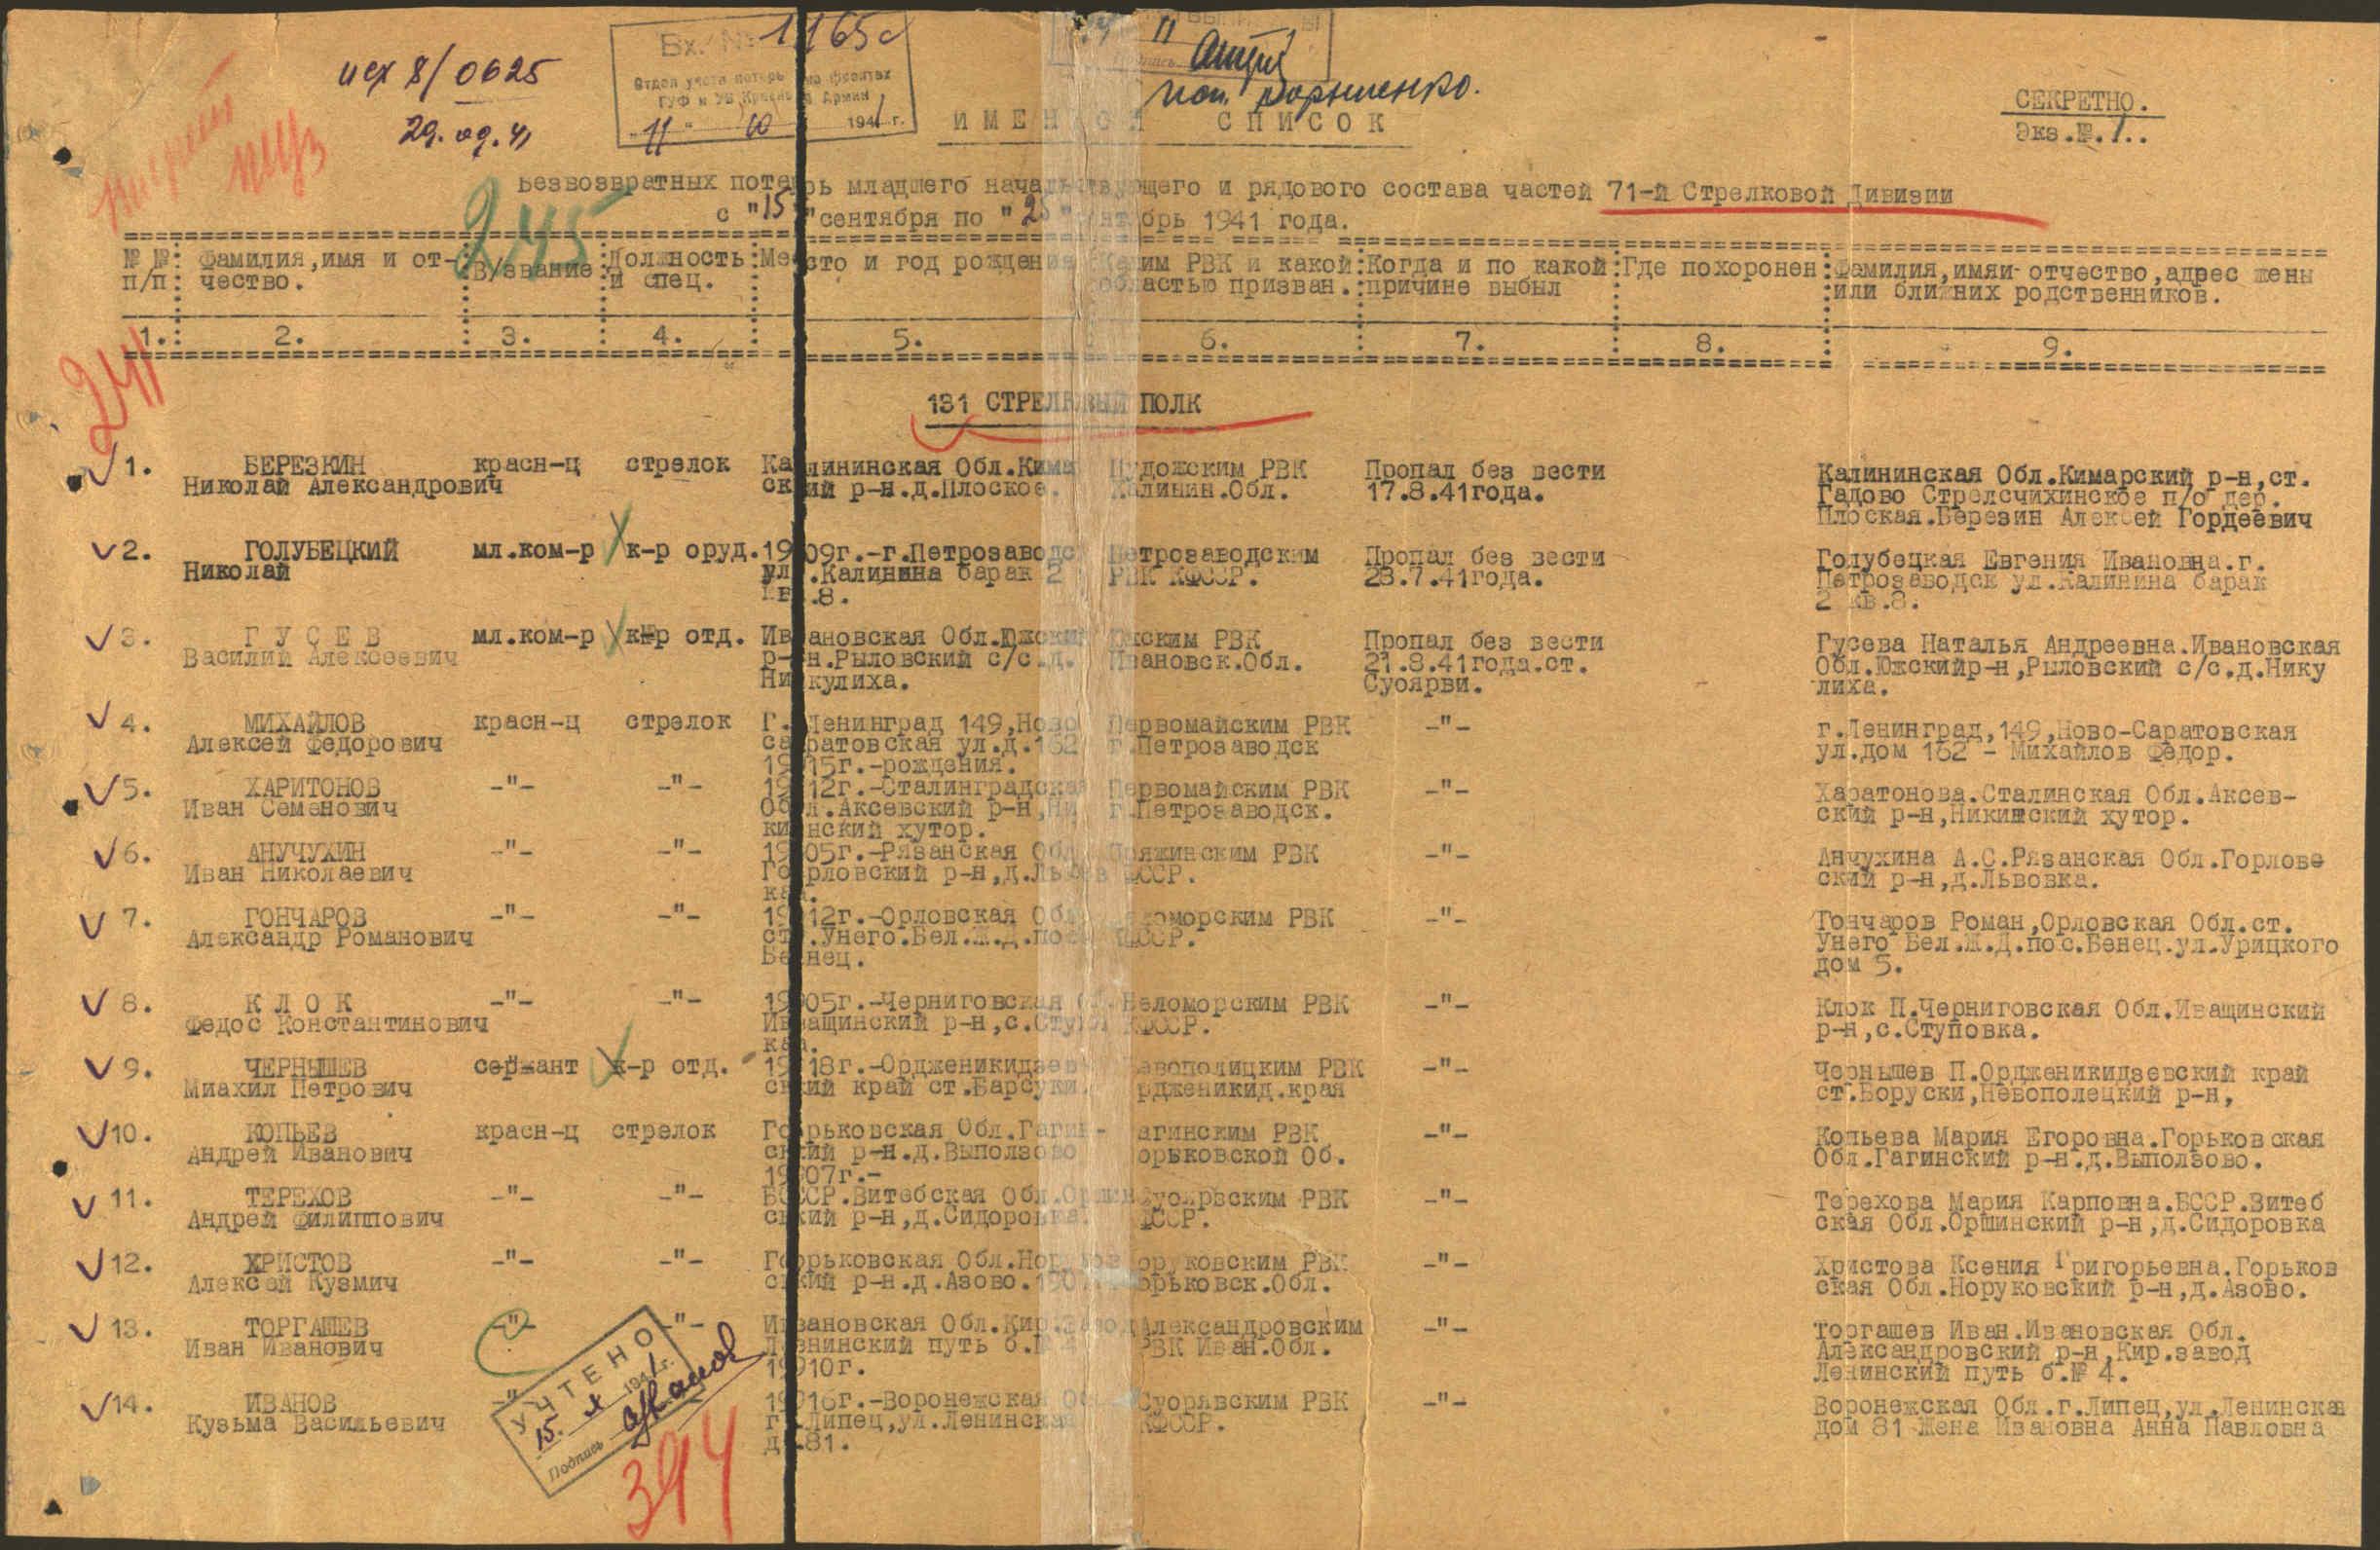 исх 8/0625
29.09.41
Вх. № 1165с
Отдел учета потерь на фронтах
ГУФ и УВ Красной Армии
"11" 10 1941 г.
СЕКРЕТНО.
Экз.№.1..
ИМЕННОЙ СПИСОК
Безвозвратных потерь младшего начальствующего и рядового состава частей 71-й Стрелковой Дивизии
с "15" сентября по "25" сентябрь 1941 года.
245
№ №: Фамилия,имя и от-: В/звание: Должность: Место и год рождения Каким РВК и какой: Когда и по какой: Где похоронен: Фамилия,имяи отчество,адрес жены
п/п: чество. и спец. областью призван.: причине выбыл или ближних родственников.
1. 2. 3. 4. 5. 6. 7. 8. 9.
241
131 СТРЕЛКОВЫЙ ПОЛК
1. БЕРЕЗКИН красн-ц стрелок Калининская Обл.Кима Пудожским РВК Пропал без вести Калининская Обл.Кимарский р-н,ст.
Николай Александрович ский р-н.д.Плоское. Калинин.Обл. 17.8.41года. Гадово Стрелсчихинское п/о дер.
Плоская.Березин Алексей Гордеевич
2. ГОЛУБЕЦКИЙ мл.ком-р к-р оруд. 1909г.-г.Петрозаводс Петрозаводским Пропал без вести Голубецкая Евгения Ивановна.г.
Николай ул.Калинина барак 2 РВК КФССР. 28.7.41года. Петрозаводск ул.Калинина барак
кв.8. 2 кв.8.
3. ГУСЕВ мл.ком-р к-р отд. Ивановская Обл.Южский Южским РВК Пропал без вести Гусева Наталья Андреевна.Ивановская
Василий Алексеевич р-н.Рыловский с/с.д. Ивановск.Обл. 21.8.41года.ст. Обл.Южскийр-н,Рыловский с/с.д.Нику
Никулиха. Суоярви. лиха.
4. МИХАЙЛОВ красн-ц стрелок Г.Ленинград 149,Ново Первомайским РВК -"- г.Ленинград,149,Ново-Саратовская
Алексей Федорович саратовская ул.д.162 г.Петрозаводск ул.дом 162 - Михайлов Федор.
1915г.-рождения.
5. ХАРИТОНОВ -"- -"- 1912г.-Сталинградская Первомайским РВК -"- Харатонова.Сталинская Обл.Аксев-
Иван Семенович Обл.Аксевский р-н,Ни г.Петрозаводск. ский р-н,Никинский хутор.
кинский хутор.
6. АНУЧУХИН -"- -"- 1905г.-Рязанская Обл Пряжинским РВК -"- Анчухина А.С.Рязанская Обл.Горлове
Иван Николаевич Горловский р-н,д.Львов КФССР. ский р-н,д.Львовка.
ка.
7. ГОНЧАРОВ -"- -"- 1912г.-Орловская Обл Беломорским РВК -"- Гончаров Роман,Орловская Обл.ст.
Александр Романович ст.Унего.Бел.Ж.Д.пос КФССР. Унего Бел.Ж.Д.пос.Бенец.ул.Урицкого
Бенец. дом 5.
8. КЛОК -"- -"- 1905г.-Черниговская Беломорским РВК -"- Клок П.Черниговская Обл.Иващинский
Федос Константинович Иващинский р-н,с.Ступ КФССР. р-н,с.Ступовка.
ка.
9. ЧЕРНЫШЕВ сержант к-р отд. 1918г.-Ордженикидзев Невополицким РВК -"- Чернышев П.Ордженикидзевский край
Миахил Петрович ский край ст.Барсуки. Ордженикид.края ст.Боруски,Невополецкий р-н,
10. КОПЬЕВ красн-ц стрелок Горьковская Обл.Гагин- Гагинским РВК -"- Копьева Мария Егоровна.Горьковская
Андрей Иванович ский р-н.д.Выползово Горьковской Об. Обл.Гагинский р-н.д.Выползово.
1907г.-
11. ТЕРЕХОВ -"- -"- БССР.Витебская Обл.Оршин Суоярвским РВК -"- Терехова Мария Карповна.БССР.Витеб
Андрей Филиппович ский р-н,д.Сидоровка. КФССР. ская Обл.Оршинский р-н,д.Сидоровка
12. ХРИСТОВ -"- -"- Горьковская Обл.Норуков Норуковским РВК -"- Христова Ксения Григорьевна.Горьков
Алексей Кузмич ский р-н.д.Азово. Горьковск.Обл. ская Обл.Норуковский р-н,д.Азово.
13. ТОРГАШЕВ -"- -"- Ивановская Обл.Кир.завод Александровским -"- Торгашев Иван.Ивановская Обл.
Иван Иванович Ленинский путь б. РВК Иван.Обл. Александровский р-н,Кир.завод
1910г. Ленинский путь б.№ 4.
14. ИВАНОВ 1916г.-Воронежская Суорявским РВК -"- Воронежская Обл.г.Липец,ул.Ленинская
Кузьма Васильевич г.Липец,ул.Ленинская КФССР. дом 81 Жена Ивановна Анна Павловна
д.81.
УЧТЕНО
15. X 1941г.
Подпись
394